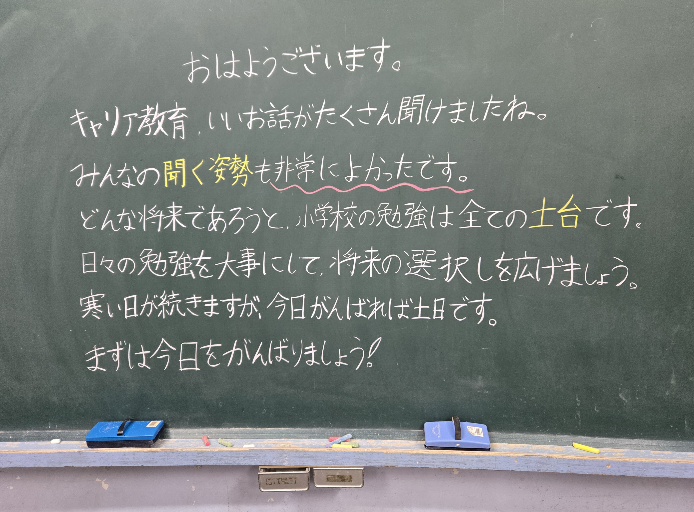 おはようございます。
キャリア教育、いいお話がたくさん聞けましたね。
みんなの聞く姿勢も非常によかったです。
どんな将来であろうと、小学校の勉強は全ての土台です。
日々の勉強を大事にして、将来の選択しを広げましょう。
寒い日が続きますが、今日がんばれば土日です。
まずは今日をがんばりましょう!